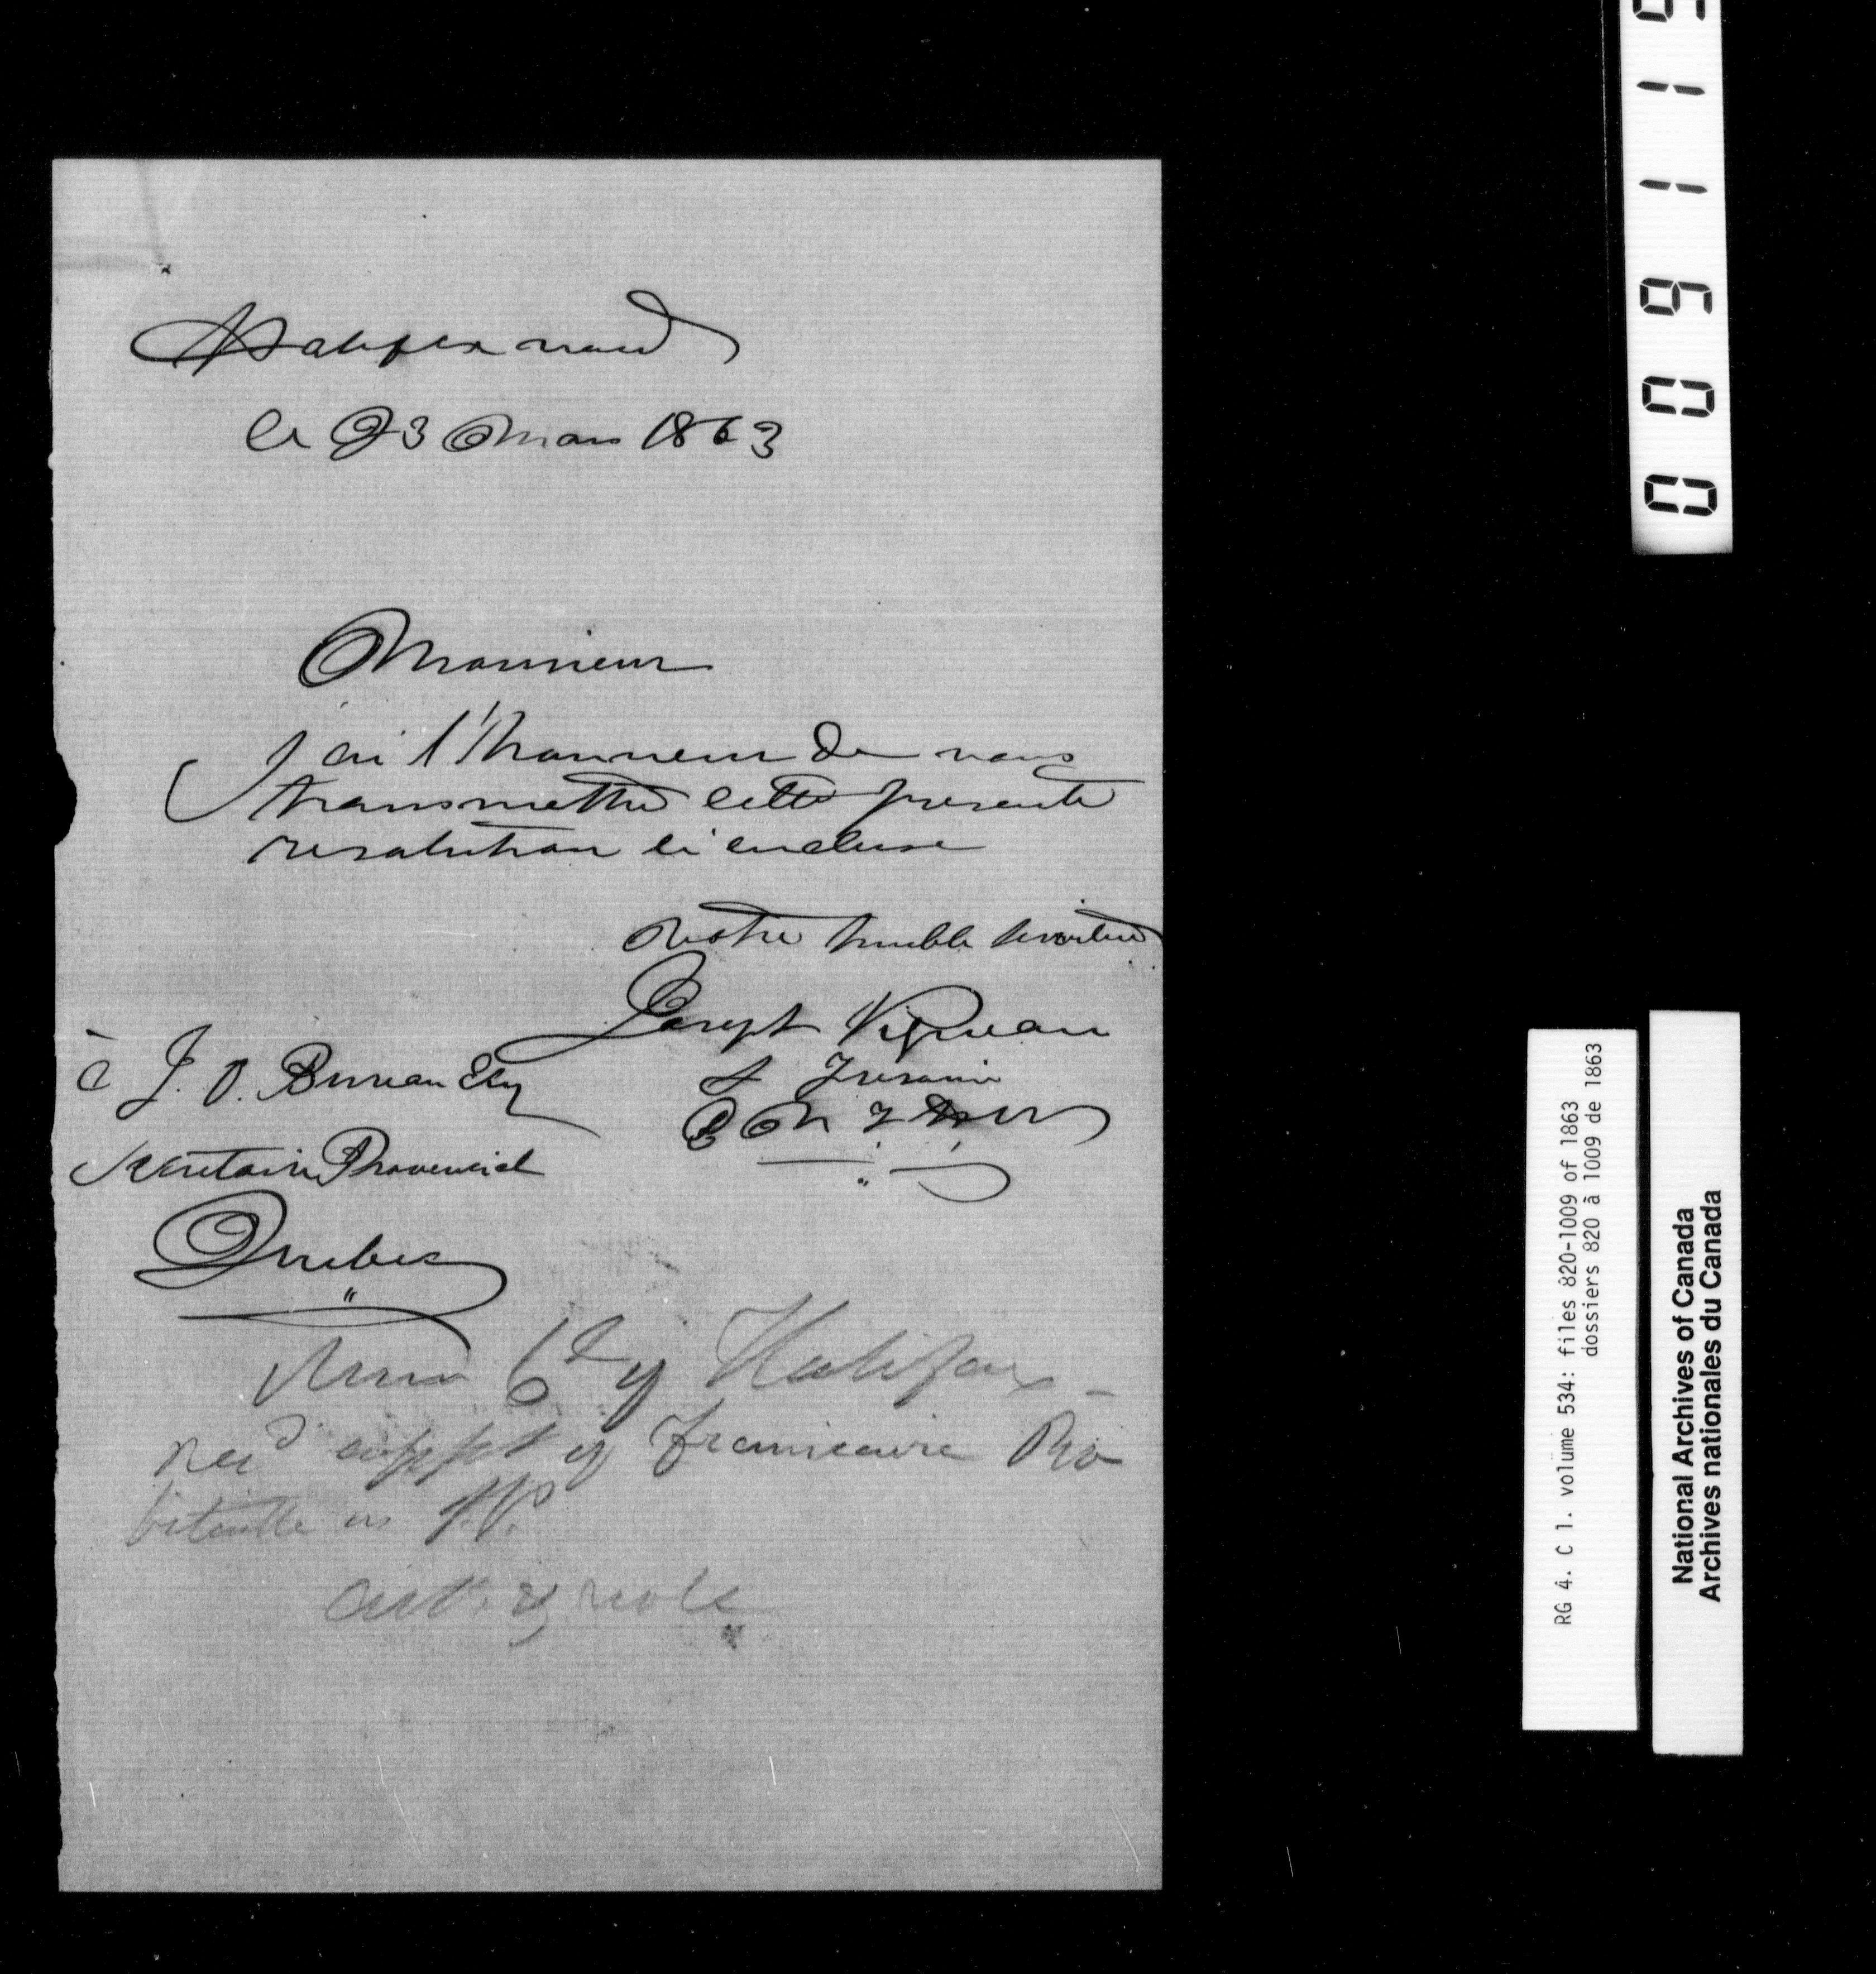 Halifax nord
le 23 Mars 1863
Monsieur
J'ai l'honneur de vous
transmettre cette presente
resolution ci encluse
Votre humble serviteur
Joseph Vigneau
S Tresorier
à J. O. Bureau Esq
Secretaire Provencial
Quebec
"
Mun Cy of Halifax -
recd appt of Francois Ro
bitaille as J.P.
00911
RG 4. C 1. volume 534: files 820-1009 of 1863
dossiers 820 à 1009 de 1863
National Archives of Canada
Archives nationales du Canada